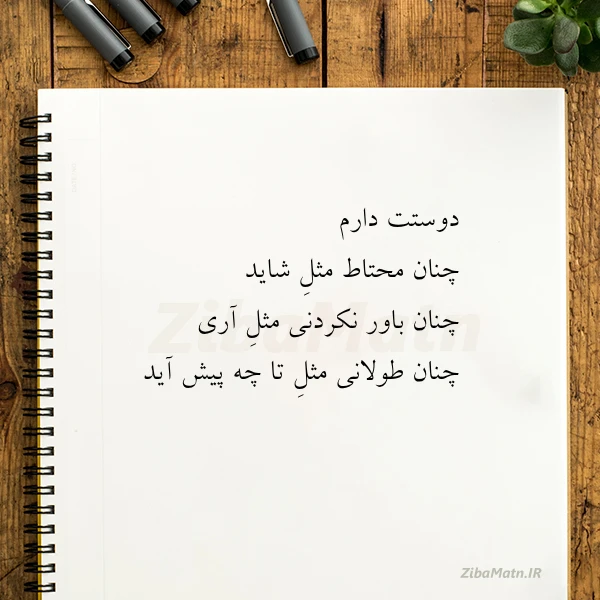 دوستت دارم
چنان محتاط مثلِ شاید
چنان باور نکردنی مثلِ آری
چنان طولانی مثلِ تا چه پیش آید
ZibaMatn
ZibaMatn.IR